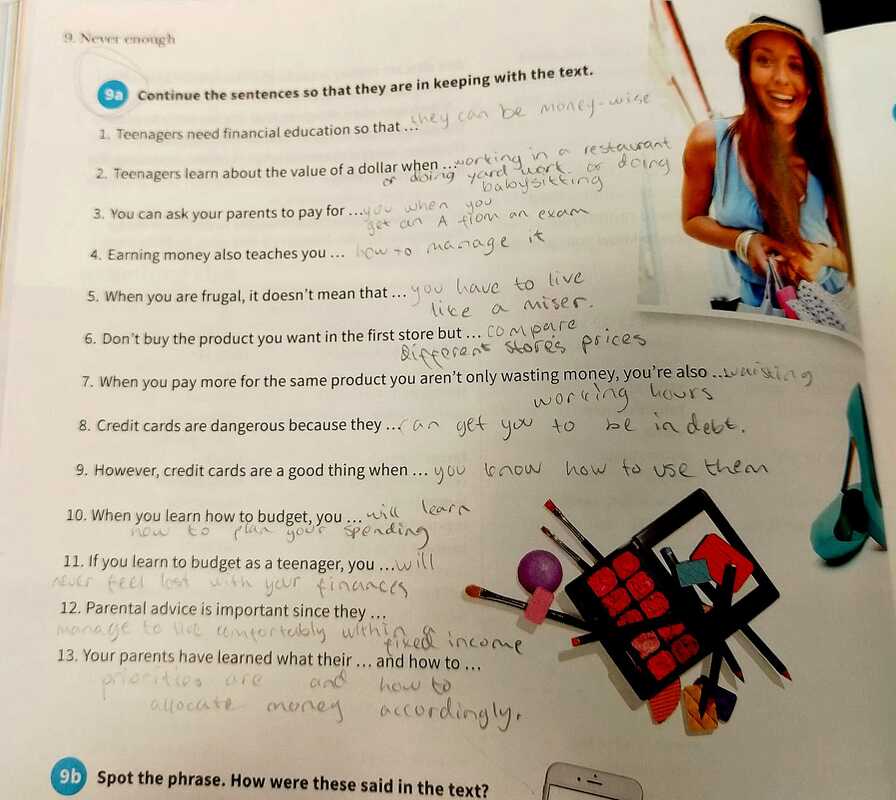 9. Never enough
9a Continue the sentences so that they are in keeping with the text.
1. Teenagers need financial education so that ... they can be money-wise
2. Teenagers learn about the value of a dollar when ... working in a restaurant
or doing yard work or doing
babysitting
3. You can ask your parents to pay for ... you when you
get an A from an exam
4. Earning money also teaches you ... how to manage it
5. When you are frugal, it doesn't mean that ... you have to live
like a miser.
6. Don't buy the product you want in the first store but ... compare
different store's prices
7. When you pay more for the same product you aren't only wasting money, you're also ... waisting
working hours
8. Credit cards are dangerous because they ... can get you to be in debt.
9. However, credit cards are a good thing when ... you know how to use them
10. When you learn how to budget, you ... will learn
how to plan your spending
11. If you learn to budget as a teenager, you ... will
never feel lost with your finances
12. Parental advice is important since they ...
manage to live comfortably within a
fixed income
13. Your parents have learned what their ... and how to ...
priorities are and how to
allocate money accordingly.
9b Spot the phrase. How were these said in the text?